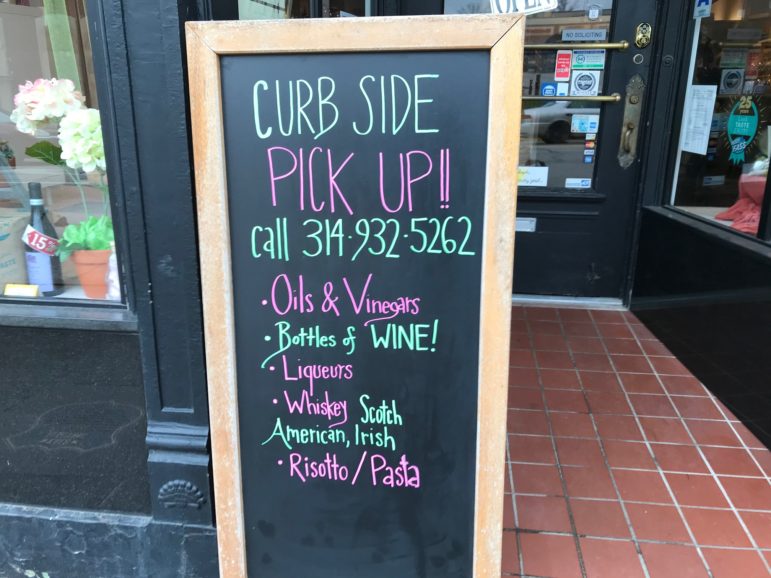 OPEN
CURB SIDE
PICK UP!!
call 314-932-5262
• Oils & Vinegars
• Bottles of WINE!
• Liqueurs
• Whiskey Scotch
American, Irish
• Risotto / Pasta
NO SOLICITING
15%
25
TASTE